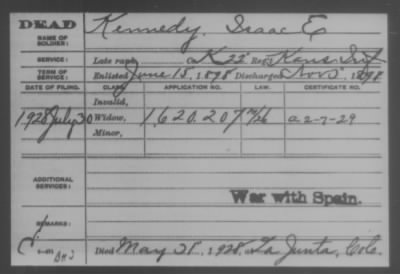 DEAD
NAME OF SOLDIER:
Kennedy, Isaac E
SERVICE:
Late rank, Co K 22" Reg't Kans Inf
TERM OF SERVICE:
Enlisted June 15, 1898 Discharged Nov 3, 1898
DATE OF FILING. CLASS. APPLICATION NO. LAW. CERTIFICATE NO.
Invalid,
1928 July 30 Widow, 1,620,207
Minor,
ADDITIONAL SERVICES:
War with Spain.
REMARKS:
Died May 31, 1928, La Junta, Colo.